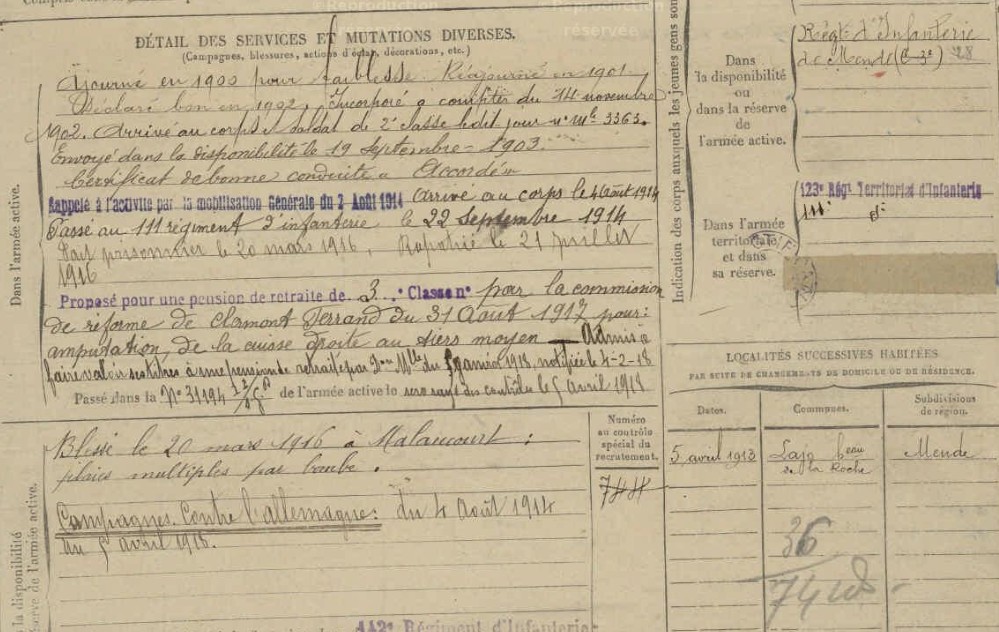 © Reproduction réservée
© Reproduction réservée
DÉTAIL DES SERVICES ET MUTATIONS DIVERSES.
(Campagnes, blessures, actions d'éclat, décorations, etc.)
Ajourné en 1900 pour faiblesse. Réajourné en 1901
Déclaré bon en 1902. Incorporé à compter du 14 novembre
1902. Arrivé au corps & soldat de 2e classe ledit jour no Mle 3363.
Envoyé dans la disponibilité le 19 Septembre 1903.
Certificat de bonne conduite "Accordé"
Rappelé à l'activité par la mobilisation Générale du 2 Août 1914 Arrivé au corps le 4 août 1914
Passé au 111 régiment d'infanterie le 22 Septembre 1914
Fait prisonnier le 20 mars 1916, Rapatrié le 21 Juillet
1916
Proposé pour une pension de retraite de 3.e Classe no par la commission
de réforme de Clermont Ferrand du 31 Août 1917 pour:
amputation de la cuisse droite au tiers moyen — Admis à
faire valoir ses titres à une pension de retraite par Don Mlle du janvier 1918, notifiée le 4-2-18
Passé dans la No 31194 de l'armée active le sera rayé des contrôles le 5 avril 1918
Dans l'armée active.
Blessé le 20 mars 1916 à Malancourt:
plaies multiples par bombe.
Campagnes. Contre l'allemagne: du 4 Août 1914
au 5 avril 1918.
la disponibilité
réserve de l'armée active.
Numéro
au contrôle
spécial du
recrutement.
744
142e Régiment d'Infanterie
Indication des corps auxquels les jeunes gens sont
Dans
la disponibilité
ou
dans la réserve
de
l'armée active.
Régt d'Infanterie
de Mende 28
Dans l'armée
territoriale
et dans
sa réserve.
123e Régt Territorial d'Infanterie
LOCALITÉS SUCCESSIVES HABITÉES
PAR SUITE DE CHANGEMENTS DE DOMICILE OU DE RÉSIDENCE.
Dates.
Communes.
Subdivisions
de région.
5 avril 1913
Lajo beau
de la Roche
Mende
36
74